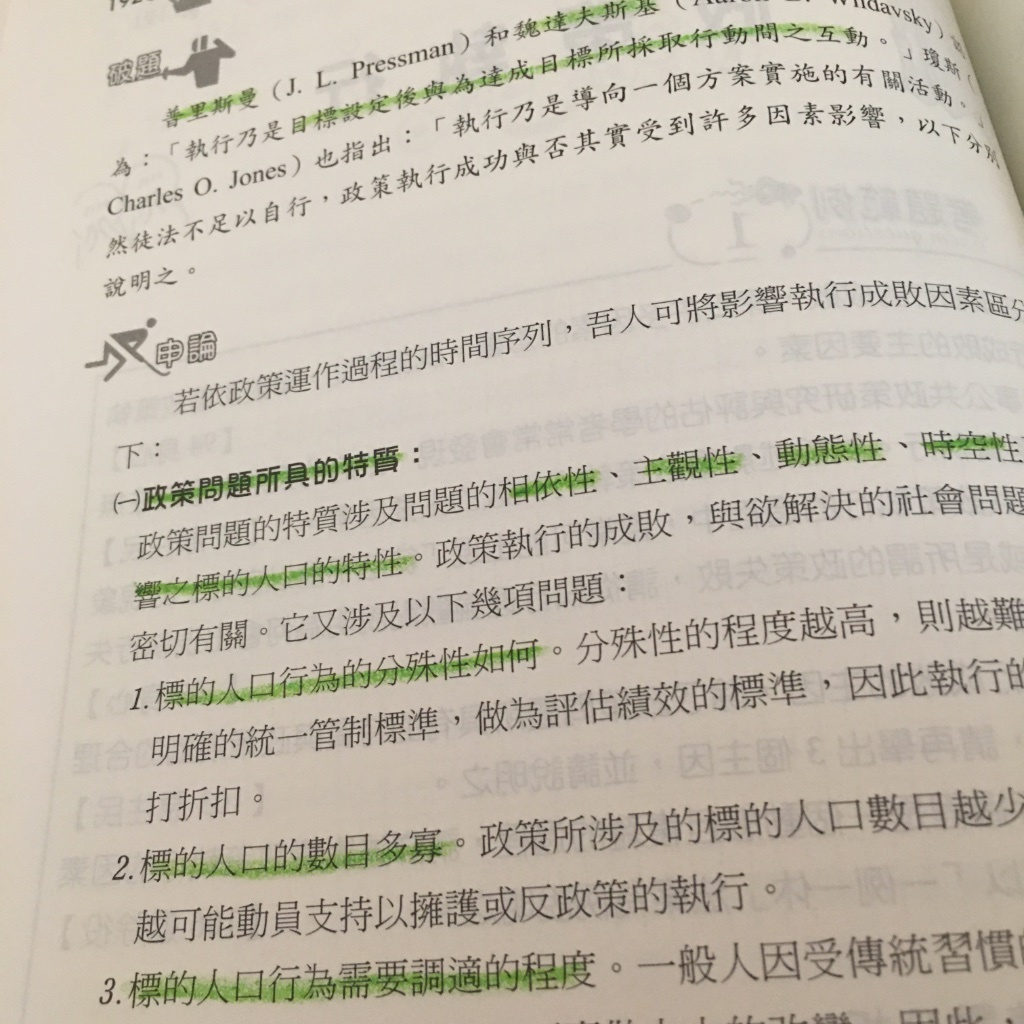 破題
普里斯曼（J. L. Pressman）和魏達夫斯基（Aaron B. Wildavsky）
為：「執行乃是目標設定後與為達成目標所採取行動間之互動。」瓊斯（
Charles O. Jones）也指出：「執行乃是導向一個方案實施的有關活動。」
然徒法不足以自行，政策執行成功與否其實受到許多因素影響，以下分別
說明之。
申論
若依政策運作過程的時間序列，吾人可將影響執行成敗因素區分
下：
㈠政策問題所具的特質：
政策問題的特質涉及問題的相依性、主觀性、動態性、時空性
響之標的人口的特性。政策執行的成敗，與欲解決的社會問題
密切有關。它又涉及以下幾項問題：
1.標的人口行為的分殊性如何。分殊性的程度越高，則越難
明確的統一管制標準，做為評估績效的標準，因此執行的
打折扣。
2.標的人口的數目多寡。政策所涉及的標的人口數目越少
越可能動員支持以擁護或反政策的執行。
3.標的人口行為需要調適的程度。一般人因受傳統習慣的